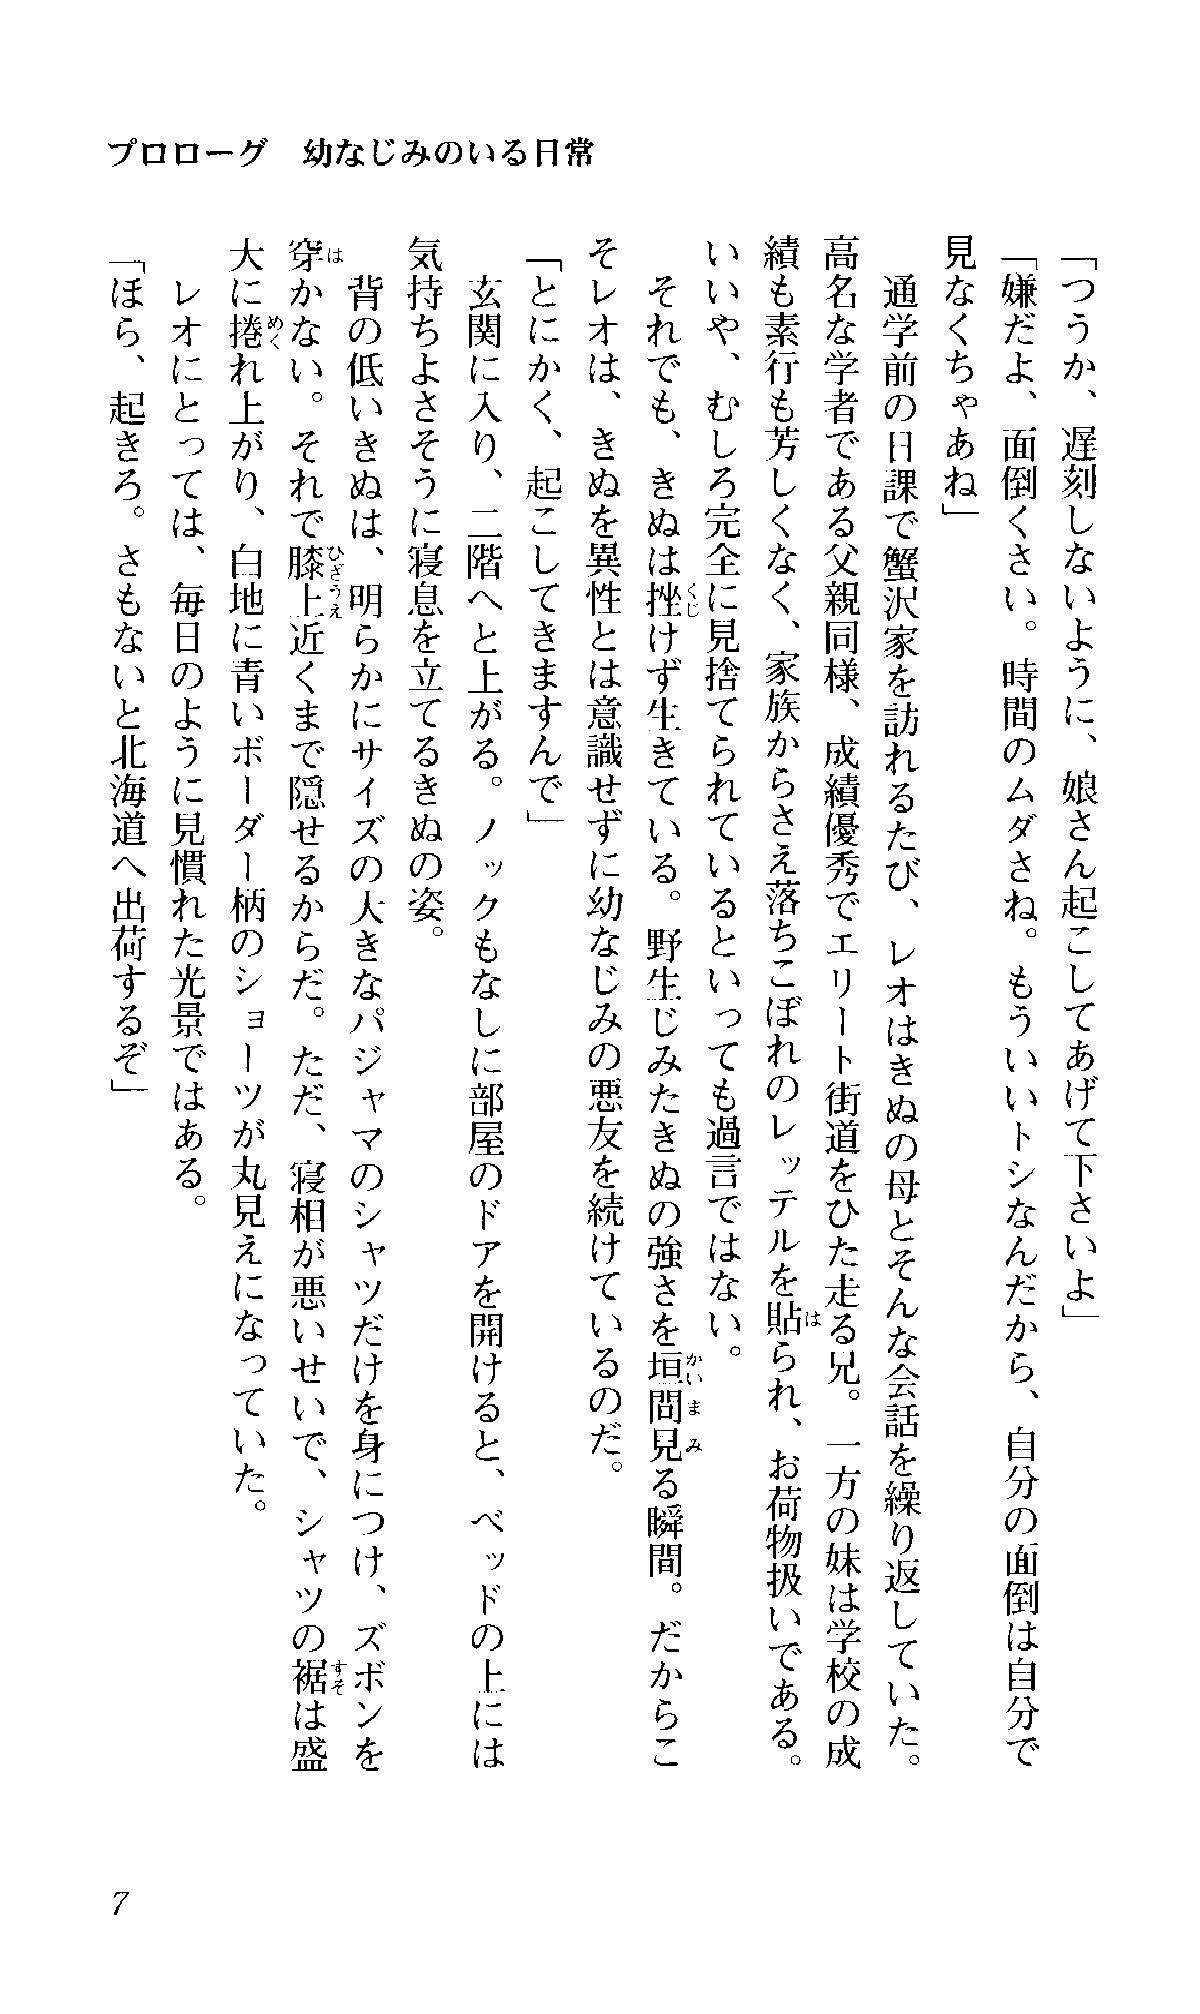 プロローグ　幼なじみのいる日常
「つうか、遅刻しないように、娘さん起こしてあげて下さいよ」
「嫌だよ、面倒くさい。時間のムダさね。もういいトシなんだから、自分の面倒は自分で
見なくちゃあね」
　通学前の日課で蟹沢家を訪れるたび、レオはきぬの母とそんな会話を繰り返していた。
高名な学者である父親同様、成績優秀でエリート街道をひた走る兄。一方の妹は学校の成
績も素行も芳しくなく、家族からさえ落ちこぼれのレッテルを貼られ、お荷物扱いである。
いいや、むしろ完全に見捨てられているといっても過言ではない。
　それでも、きぬは挫けず生きている。野生じみたきぬの強さを垣間見る瞬間。だからこ
そレオは、きぬを異性とは意識せずに幼なじみの悪友を続けているのだ。
「とにかく、起こしてきますんで」
　玄関に入り、二階へと上がる。ノックもなしに部屋のドアを開けると、ベッドの上には
気持ちよさそうに寝息を立てるきぬの姿。
　背の低いきぬは、明らかにサイズの大きなパジャマのシャツだけを身につけ、ズボンを
穿かない。それで膝上近くまで隠せるからだ。ただ、寝相が悪いせいで、シャツの裾は盛
大に捲れ上がり、白地に青いボーダー柄のショーツが丸見えになっていた。
　レオにとっては、毎日のように見慣れた光景ではある。
「ほら、起きろ。さもないと北海道へ出荷するぞ」
7